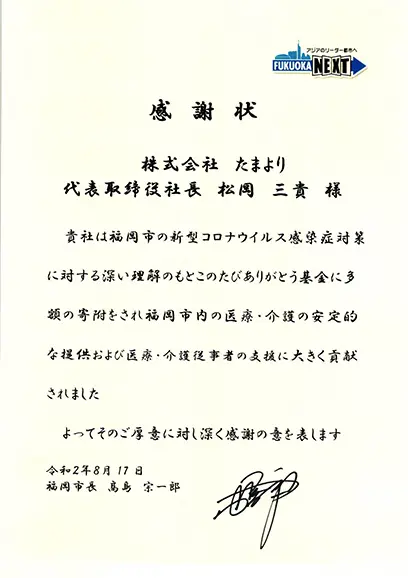 アジアのリーダー都市へ
FUKUOKA NEXT
感謝状
株式会社 たまより
代表取締役社長 松岡 三貴 様
貴社は福岡市の新型コロナウイルス感染症対策
に対する深い理解のもとこのたびありがとう基金に多
額の寄附をされ福岡市内の医療・介護の安定的
な提供および医療・介護従事者の支援に大きく貢献
されました
よってそのご厚意に対し深く感謝の意を表します
令和2年8月17日
福岡市長 高島 宗一郎